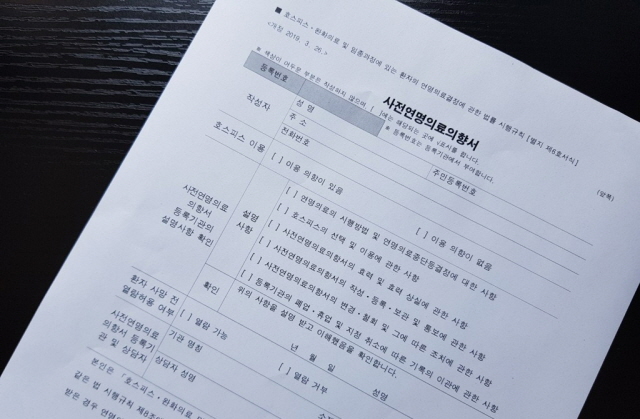 ■ 호스피스·완화의료 및 임종과정에 있는 환자의 연명의료결정에 관한 법률 시행규칙 [별지 제6호서식]
<개정 2019. 3. 26.>
사전연명의료의향서
(앞쪽)
※ 색상이 어두운 부분은 작성하지 않으며, [ ]에는 해당되는 곳에 √표시를 합니다.
등록번호
※ 등록번호는 등록기관에서 부여합니다.
작성자
성 명
주민등록번호
주 소
전화번호
호스피스 이용
[ ] 이용 의향이 있음
[ ] 이용 의향이 없음
사전연명의료
의향서
등록기관의
설명사항 확인
설명
사항
[ ] 연명의료의 시행방법 및 연명의료중단등결정에 대한 사항
[ ] 호스피스의 선택 및 이용에 관한 사항
[ ] 사전연명의료의향서의 효력 및 효력 상실에 관한 사항
[ ] 사전연명의료의향서의 작성·등록·보관 및 통보에 관한 사항
[ ] 사전연명의료의향서의 변경·철회 및 그에 따른 조치에 관한 사항
[ ] 등록기관의 폐업·휴업 및 지정 취소에 따른 기록의 이관에 관한 사항
확인
위의 사항을 설명 받고 이해했음을 확인합니다.
년 월 일 성명
환자 사망 전
열람허용 여부
[ ] 열람 가능
[ ] 열람 거부
사전연명의료
의향서 등록기
관 및 상담자
기관 명칭
상담자 성명
본인은 「호스피스·완화의료
같은 법 시행규칙 제8조
받은 경우